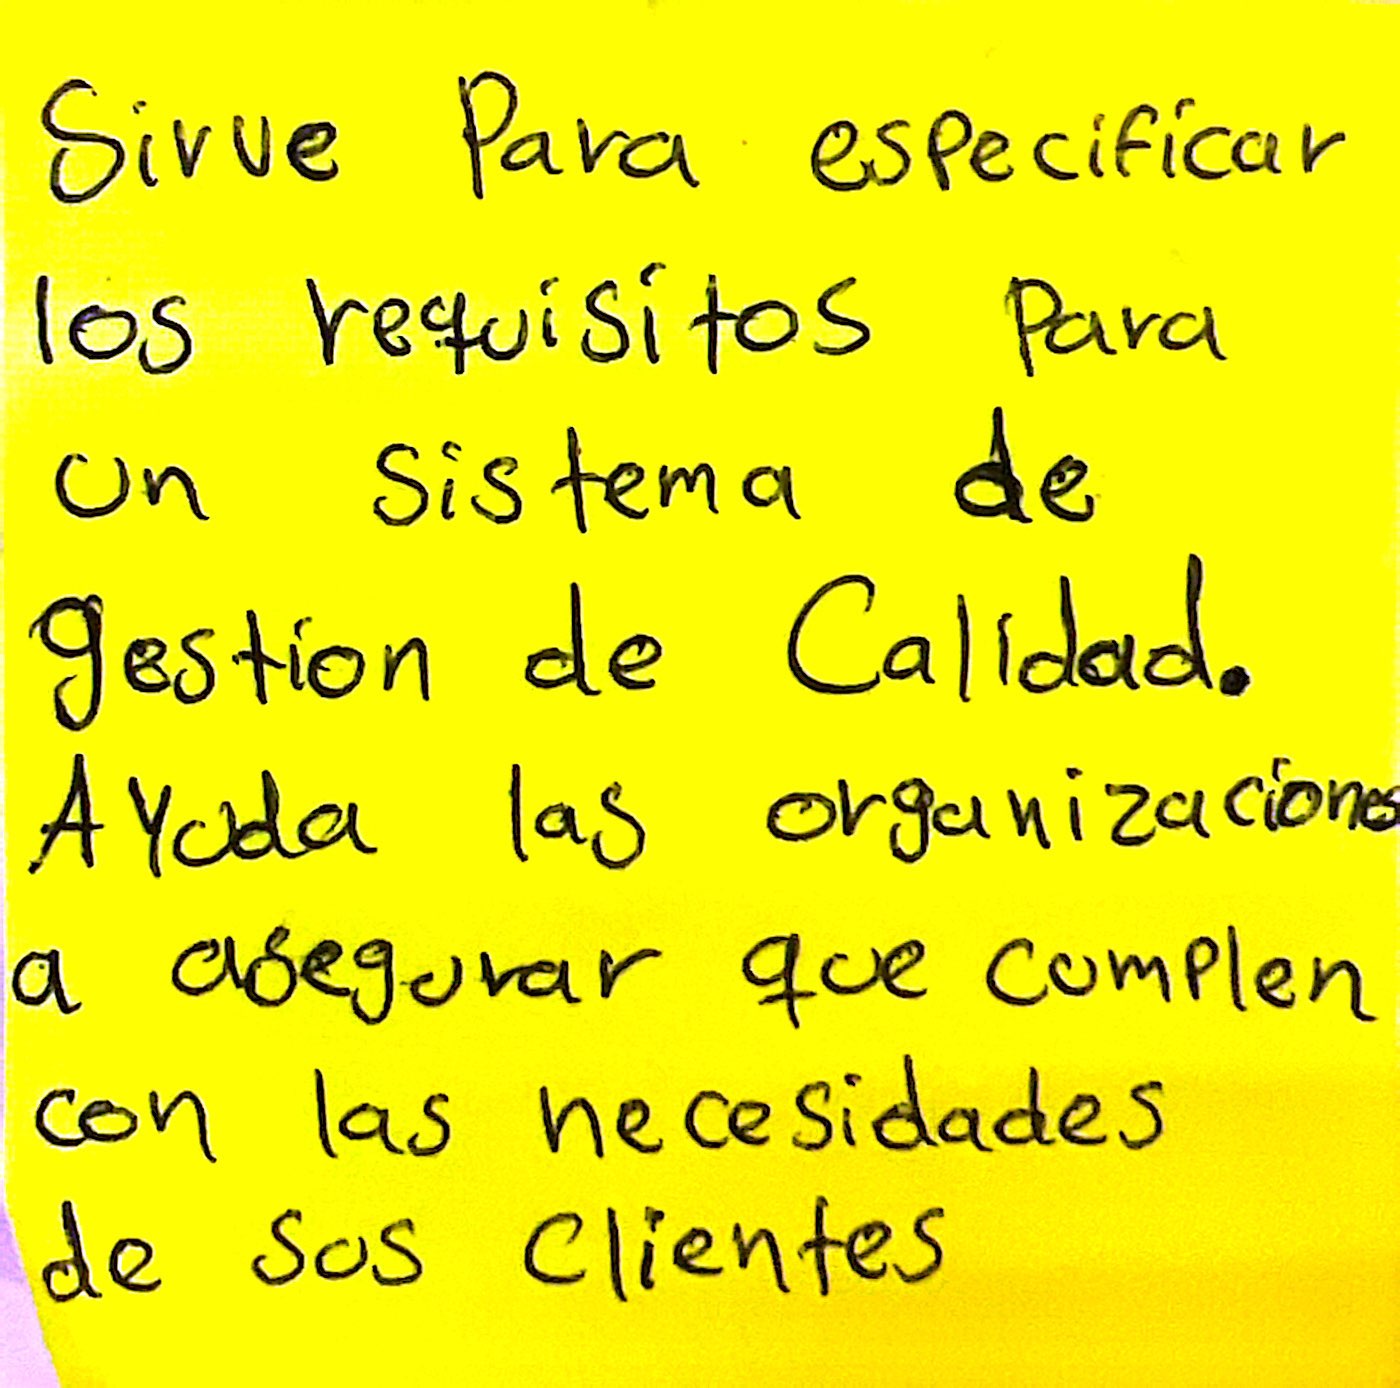 Sirve Para especificar
los requisitos Para
un sistema de
gestion de Calidad.
Ayuda las organizacione
a asegurar que cumplen
con las necesidades
de sus clientes